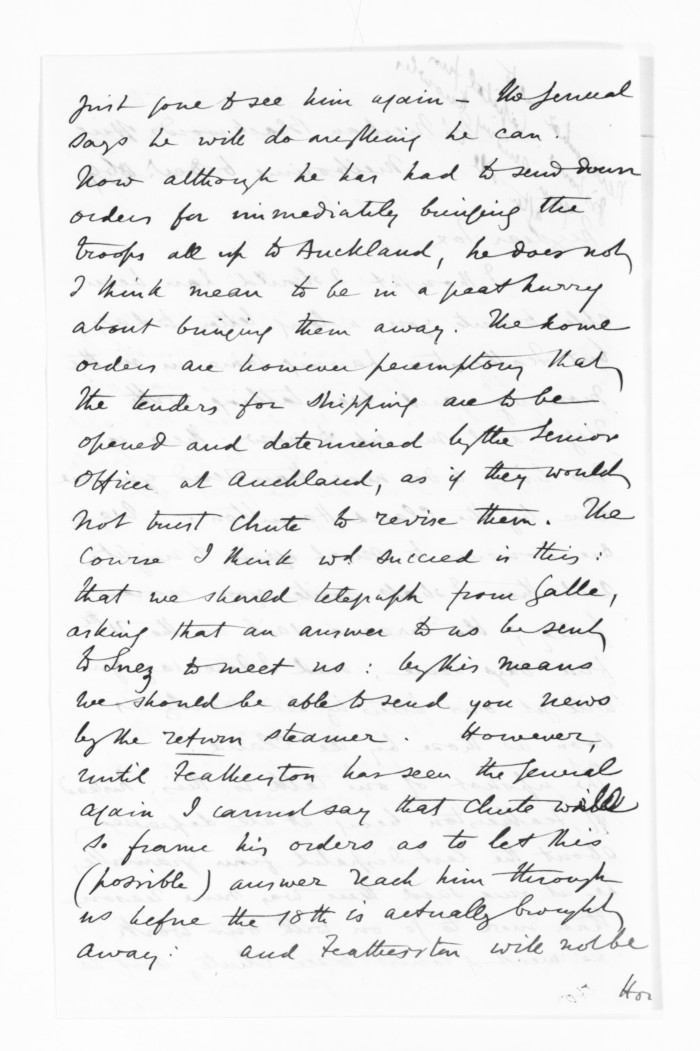 just gone to see him again – the General
says he will do anything he can.
Now although he has had to send down
orders for immediately bringing the
troops all up to Auckland, he does not
I think mean to be in a great hurry
about bringing them away. The home
orders are however peremptory that
the tenders for shipping are to be
opened and determined by the Senior
Officer at Auckland, as if they would
not trust Chute to revise them. The
course I think wd. succeed is this:
that we should telegraph from Galle,
asking that an answer to us be sent
to Suez to meet us: by this means
we should be able to send you news
by the return steamer. However,
until Featherston has seen the General
again I cannot say that Chute
so frame his orders as to let this
(possible) answer reach him through
us before the 18th is actually brought
away: and Featherston will not be